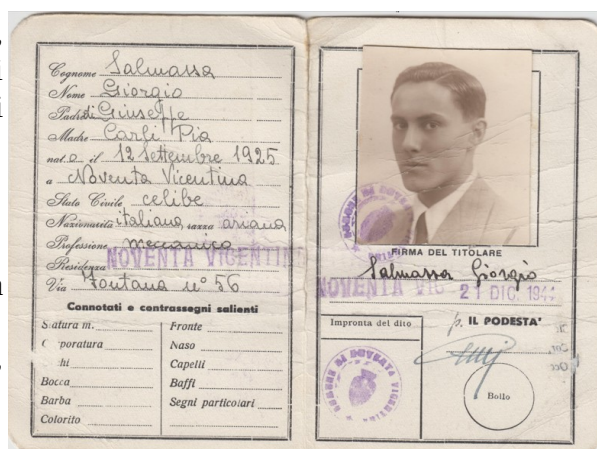 Cognome Salmassa
Nome Giorgio
Padre di Giuseppe
Madre Carli Pia
nato il 12 Settembre 1925
a Noventa Vicentina
Stato Civile celibe
Nazionalità italiana, razza ariana
Professione meccanico
Residenza NOVENTA VICENTIN
Via Fontana n° 56
Connotati e contrassegni salienti
Statura m.
Fronte
Corporatura
Naso
chi
Capelli
Bocca
Baffi
Barba
Segni particolari
Colorito
FIRMA DEL TITOLARE
Salmassa Giorgio
NOVENTA VIC 21 DIC. 1944
Impronta del dito
p. IL PODESTA'
COMUNE DI NOVENTA VICENTINA
Bollo